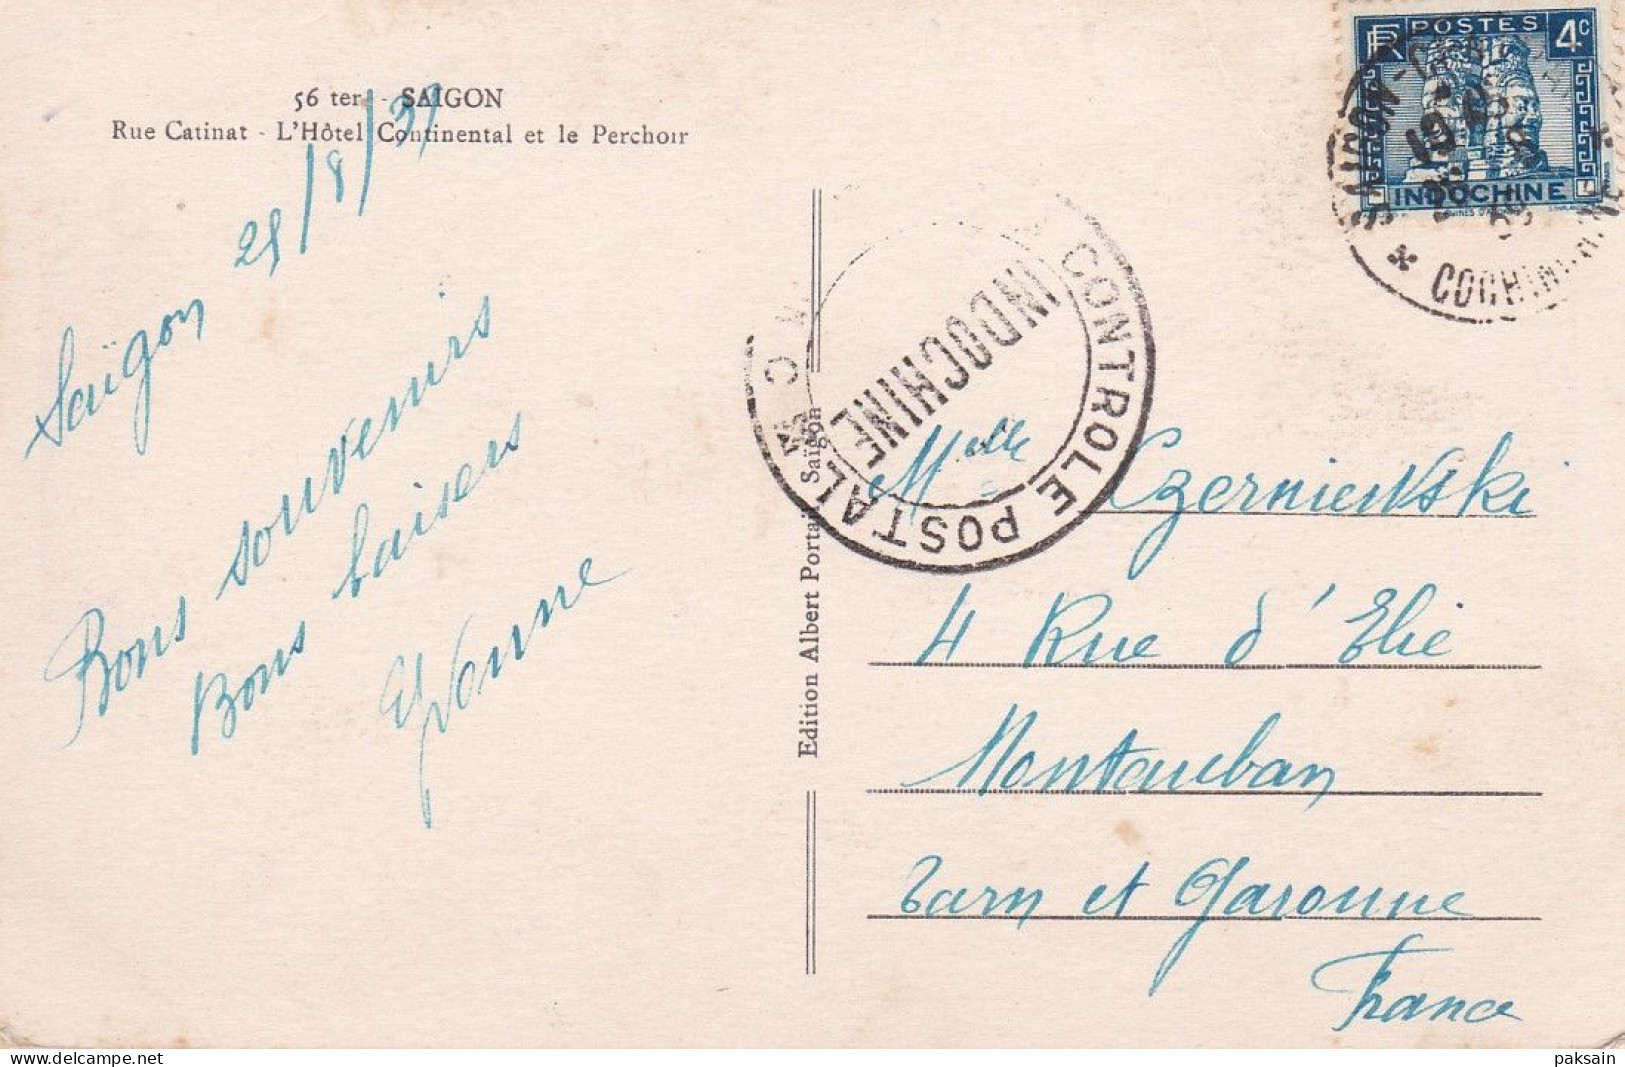 56 ter - SAIGON
Rue Catinat - L'Hôtel Continental et le Perchoir
Saïgon 28/8/39
Bons souvenirs
Bons baisers
Yvonne
Edition Albert Portail Saïgon
CONTROLE POSTAL
INDOCHINE
RF POSTES 4c
INDOCHINE
SAIGON
Mlle Czerniewski
4 Rue d'Elie
Montauban
Tarn et Garonne
France
paksain